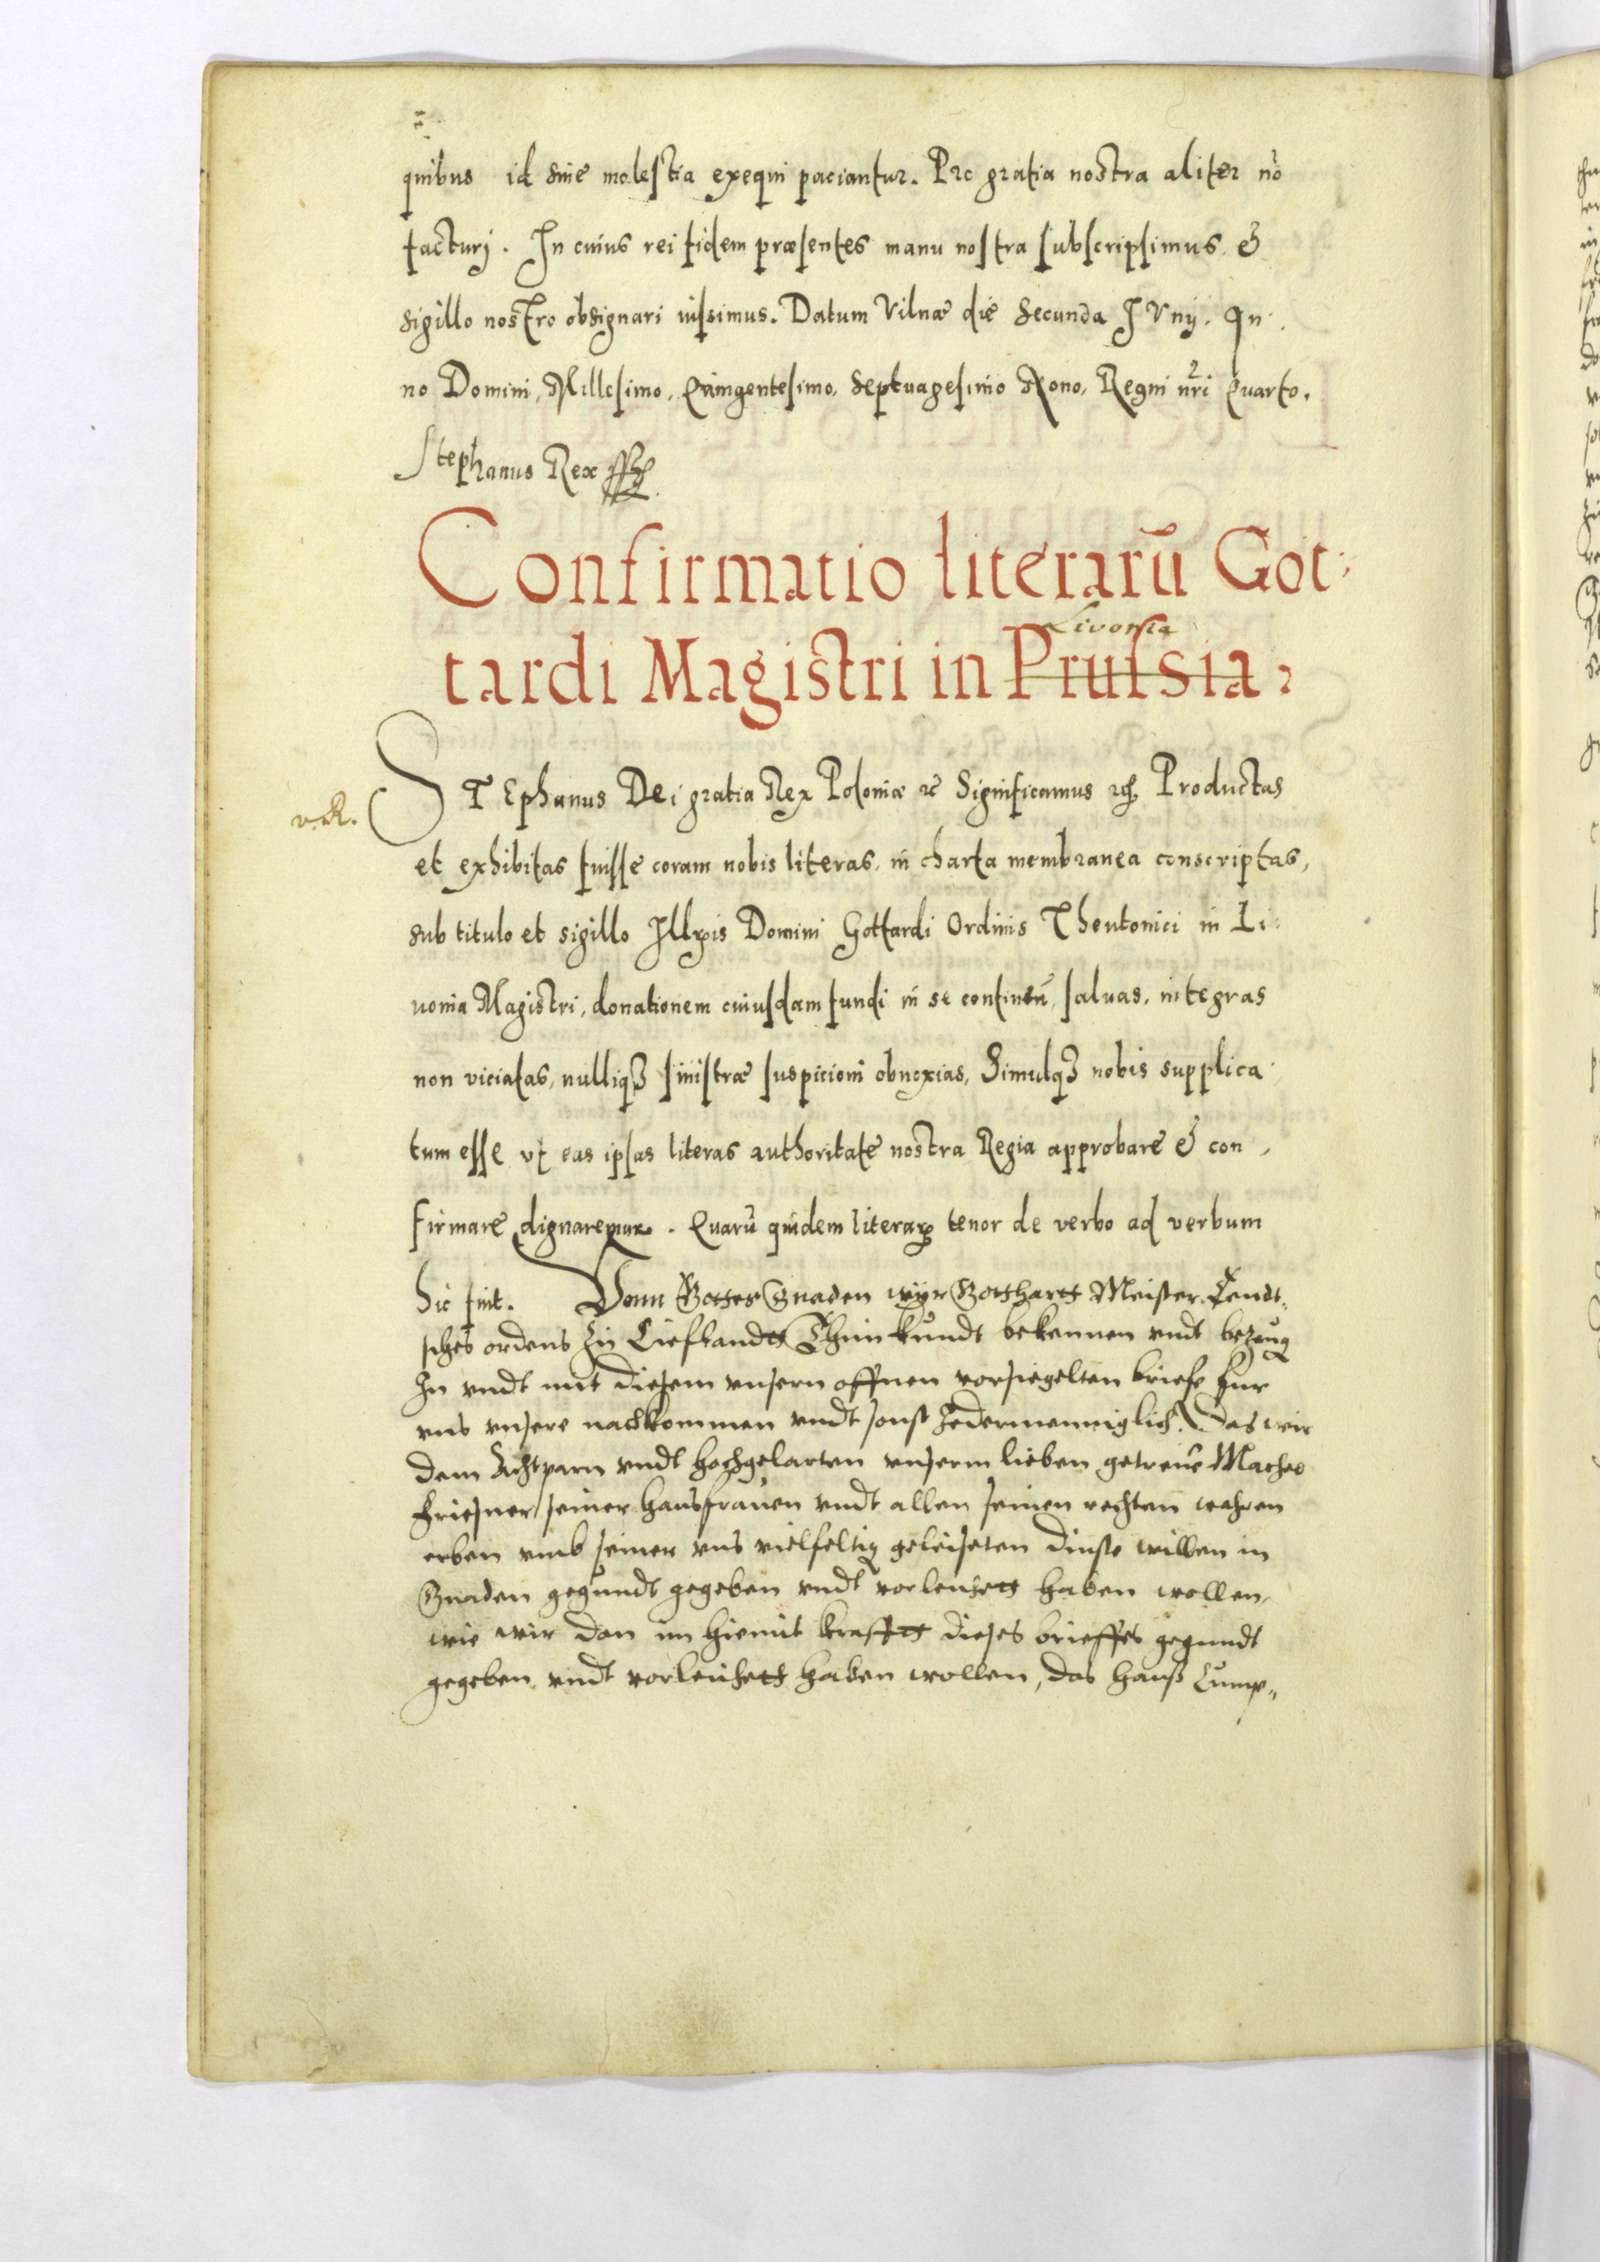 quibus id sine molestia exequi paciantur. Pro gratia nostra aliter nō
facturj. In cuius rei fidem præsentes manu nostra subscripsimus &
sigillo nostro obsignari iussimus. Datum Vilnæ die Secunda JVnij. An
no Domini, Millesimo, Quingentesimo, Septuagesimo Nono, Regni nri Quarto.
Stephanus Rex
Confirmatio literarū Got
Livonia
tardi Magistri in Prussia.
STEphanus Dei gratia Rex Poloniæ &c Significamus Productas
v. R.
et exhibitas fuisse coram nobis literas, in charta membranea conscriptas,
sub titulo et sigillo Illris Domini Gottardi Ordinis Theutonici in Li
uonia Magistri, donationem cuiusdam fundi in se continen, saluas, integras
non viciatas, nulliqꝫ sinistræ suspicioni obnoxias, Simulqꝫ nobis supplica
tum esse vt eas ipsas literas authoritate nostra Regia approbare & con
firmare dignaremur. Quarū quidem literarꝝ tenor de verbo ad verbum
hic fuit. Vonn Gottes Gnaden wyr Gotthartt Meister Teudt
sches ordens Zu Liefflandtt Thun kundt bekennen vndt bezeug
In vndt mit diesem vnsern offnen vorsiegelten briefe fur
vns vnsere nachkommen vndt sonst Jedermenniglich. Das wir
dem Achtparn vndt hochgelarten vnserm lieben getreuē Matheo
Friesner seiner hausfrauen vndt allen seinen rechten wahren
erben vmb seiner vns vielfeltig geleisten dinste willen in
Gnaden gegundt gegeben vndt vorleuhett haben wollen,
wie wir dan im hiemit krafftt dieses brieffes gegundt
gegeben vndt vorleuhett haben wollen, das hauß Lemp